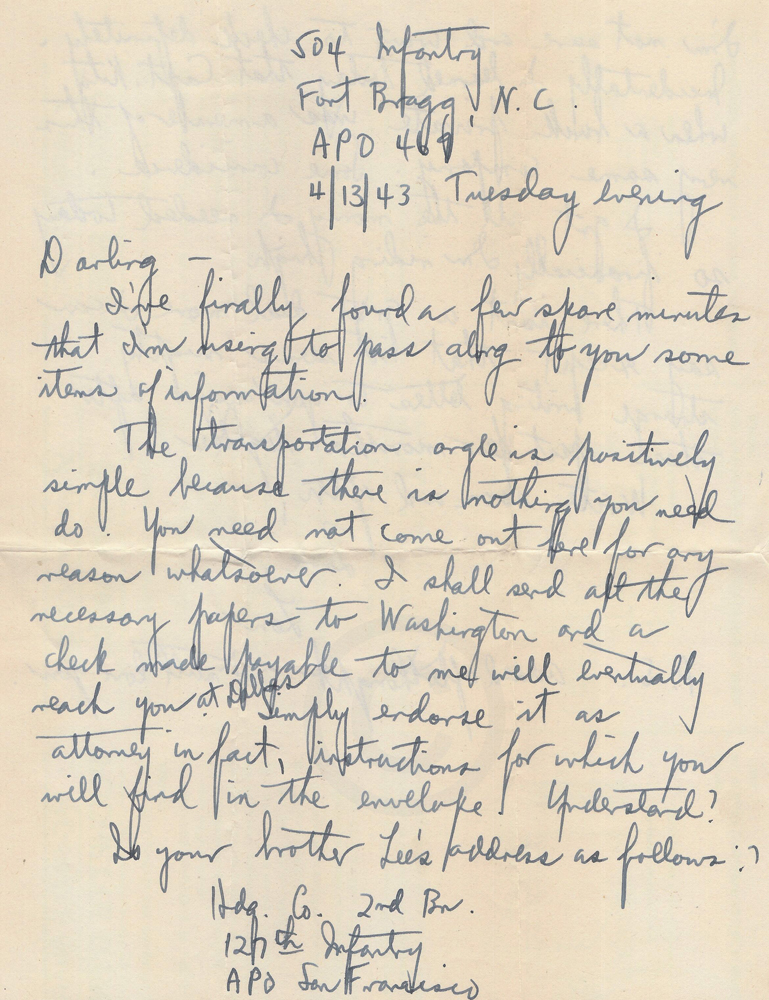 504 Infantry
Fort Bragg, N.C.
APO 469
4/13/43 Tuesday evening
Darling —
I've finally found a few spare minutes
that I'm using to pass along to you some
items of information.
The transportation angle is positively
simple because there is nothing you need
do. You need not come out here for any
reason whatsoever. I shall send all the
necessary papers to Washington and a
check made payable to me will eventually
reach you at Dallas. Simply endorse it as
attorney in fact, instructions for which you
will find in the envelope. Understand?
Is your brother Lee's address as follows:?
Hdq. Co. 2nd Bn.
127th Infantry
APO San Francisco